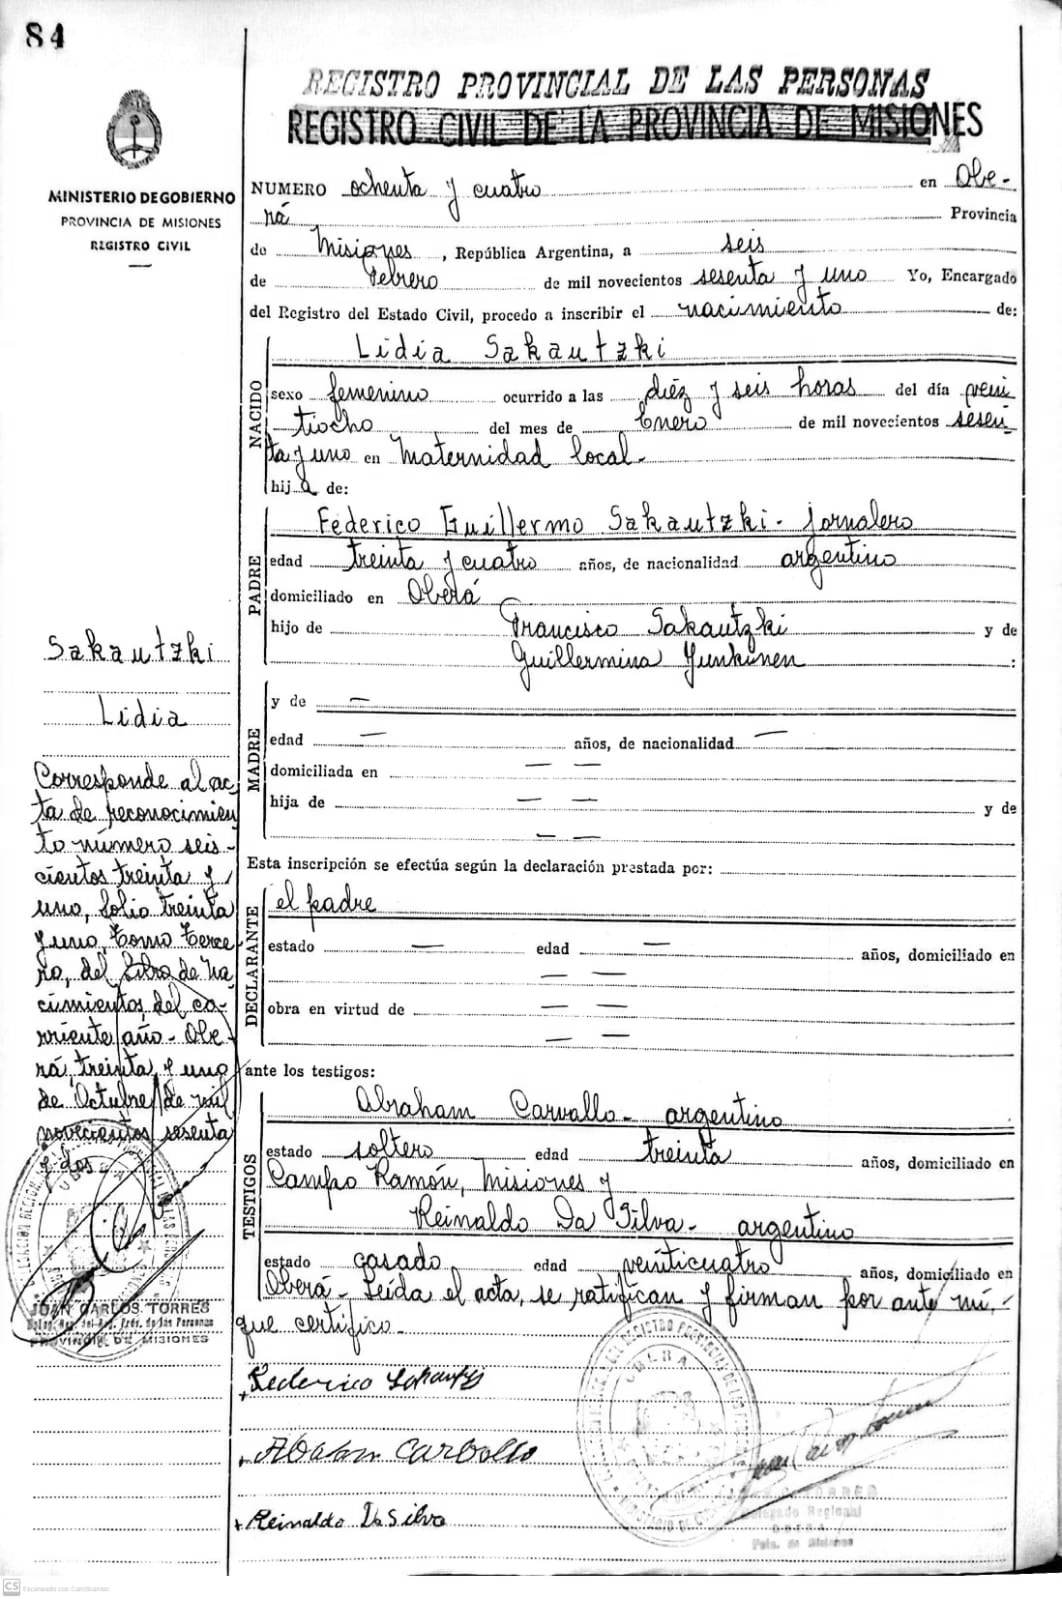 84
REGISTRO PROVINCIAL DE LAS PERSONAS
REGISTRO CIVIL DE LA PROVINCIA DE MISIONES
MINISTERIO DE GOBIERNO
PROVINCIA DE MISIONES
REGISTRO CIVIL
NUMERO ochenta y cuatro en Obe-
rá Provincia
de Misiones, República Argentina, a seis
de Febrero de mil novecientos sesenta y uno Yo, Encargado
del Registro del Estado Civil, procedo a inscribir el nacimiento de:
NACIDO
Lidia Sakautzki
sexo femenino ocurrido a las diéz y seis horas del día vein
tiocho del mes de Enero de mil novecientos sesen-
ta y uno en Maternidad local-
hija de:
PADRE
Federico Guillermo Sakautzki- jornalero
edad treinta y cuatro años, de nacionalidad argentino
domiciliado en Oberá
hijo de Francisco Sakautzki y de
Guillermina Yunkunen :
MADRE
y de —
edad — años, de nacionalidad —
domiciliada en — —
hija de — — y de
— —
Esta inscripción se efectúa según la declaración prestada por:
DECLARANTE
el padre
estado — edad — años, domiciliado en
— —
obra en virtud de — —
— —
ante los testigos:
TESTIGOS
Abraham Carvallo- argentino
estado soltero edad treinta años, domiciliado en
Campo Ramón, Misiones y
Reinaldo Da Silva- argentino
estado casado edad veinticuatro años, domiciliado en
Oberá- Leída el acta, se ratifican y firman por ante mí,-
que certifico.
Sakautzki
Lidia
Corresponde al ac
ta de reconocimien
to número seis-
cientos treinta y
uno, folio treinta
y uno, Tomo Terce
ro, del Libro de Na
cimientos del co-
rriente año- Obe-
rá, treinta y uno
de Octubre de mil
novecientos sesenta
y dos
JUAN CARLOS TORRES
PROVINCIA DE MISIONES
Federico
Carvallo
Reinaldo Da Silva
OBERA
Delegado Regional
OBERA
Pcia. de Misiones
CS Escaneado con CamScanner